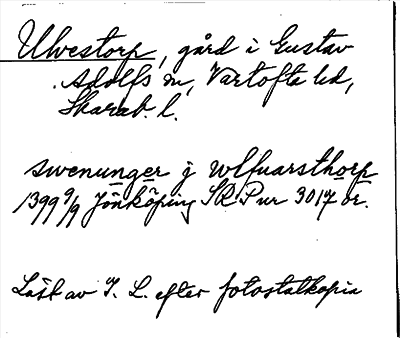 Ulvestorp, gård i Gustav
Adolfs sn, Vartofta hd,
Skarab. l.
swenunger j wlfuarsthorp
1399 9/9 Jönköping SRP nr 3017 or.
Läst av I. L. efter fotostatkopia